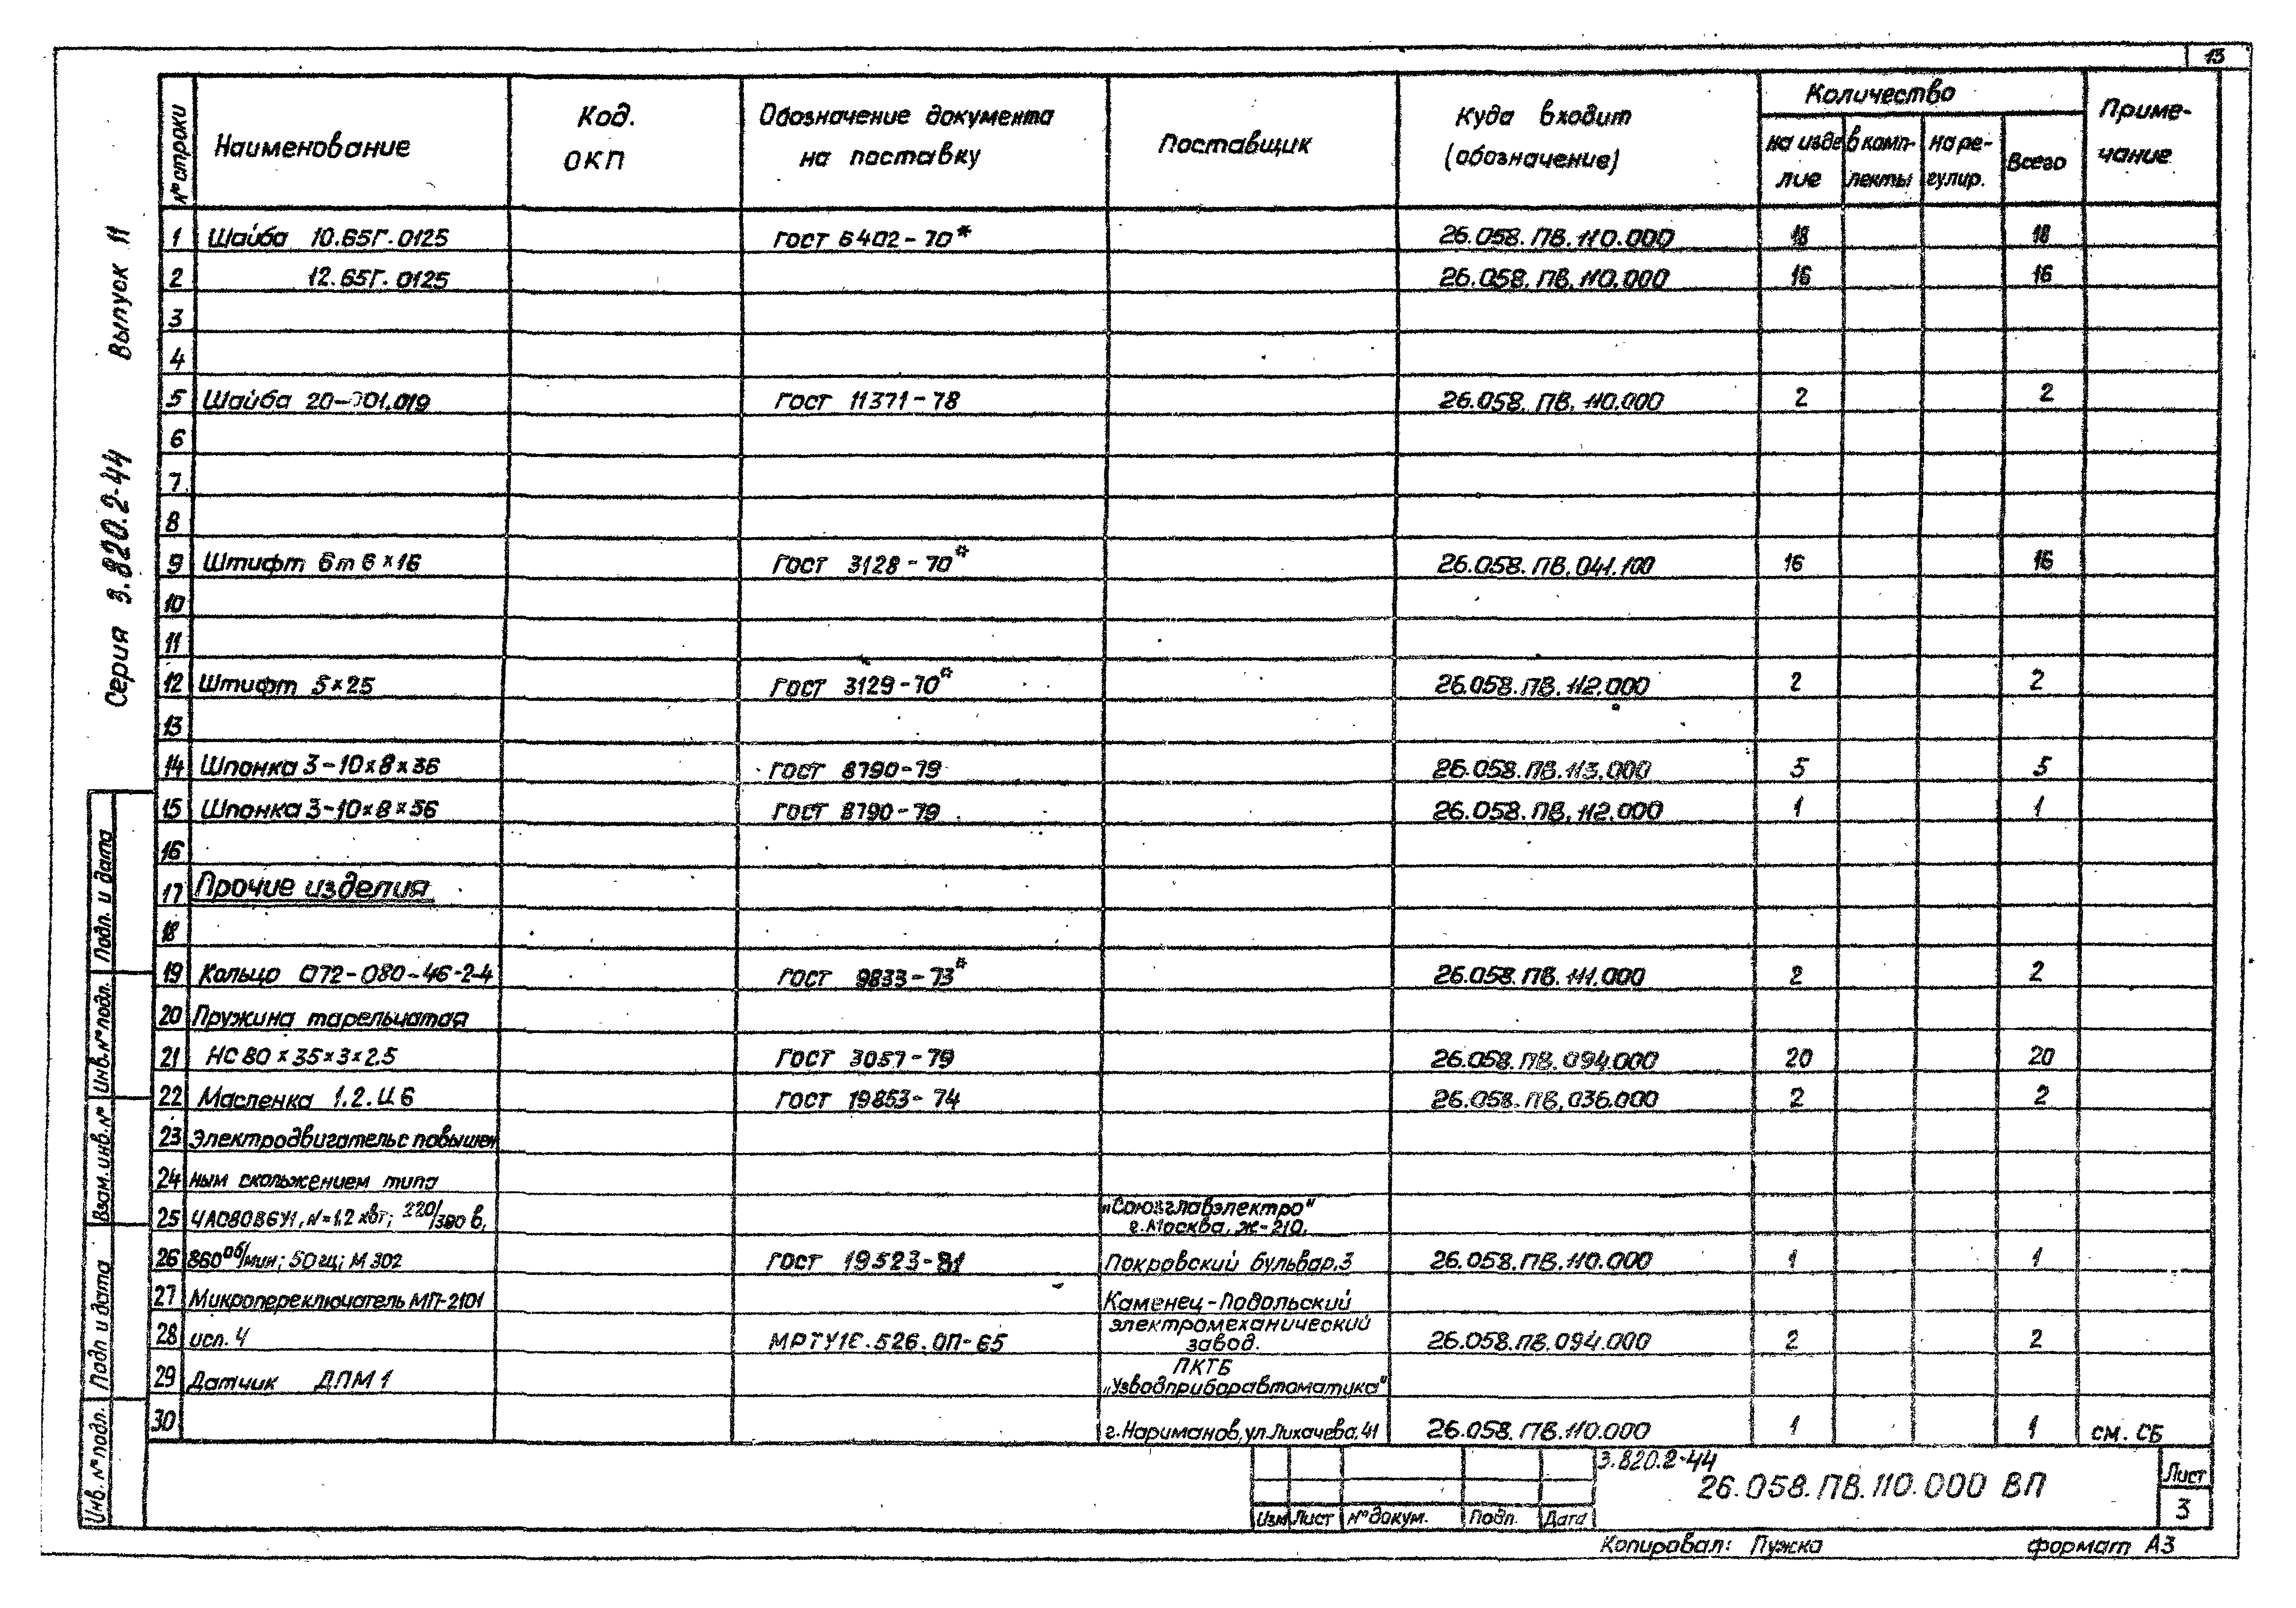 13
Серия 3.820.2-44 Выпуск 11
№ строки Наименование Код. ОКП Обозначение документа на поставку Поставщик Куда входит (обозначение) Количество на изделие в комплекты на регулир. Всего Примечание
1 Шайба 10.65Г.0125 ГОСТ 6402-70* 26.058.ПВ.110.000 18 18
2 12.65Г.0125 26.058.ПВ.110.000 16 16
3
4
5 Шайба 20-001.019 ГОСТ 11371-78 26.058.ПВ.110.000 2 2
6
7
8
9 Штифт 6m6×16 ГОСТ 3128-70* 26.058.ПВ.041.100 16 16
10
11
12 Штифт 5×25 ГОСТ 3129-70* 26.058.ПВ.112.000 2 2
13
14 Шпонка 3-10×8×36 ГОСТ 8790-79 26.058.ПВ.113.000 5 5
15 Шпонка 3-10×8×36 ГОСТ 8790-79 26.058.ПВ.112.000 1 1
16
17 Прочие изделия
18
19 Кольцо 072-080-46-2-4 ГОСТ 9833-73* 26.058.ПВ.111.000 2 2
20 Пружина тарельчатая
21 НС 80×35×3×2.5 ГОСТ 3057-79 26.058.ПВ.094.000 20 20
22 Масленка 1.2.Ц6 ГОСТ 19853-74 26.058.ПВ.036.000 2 2
23 Электродвигатель с повышен
24 ным скольжением типа
25 4АС80В6У1, N=1,2 кВт; 220/380 в, „Союзглавэлектро" г.Москва, Ж-210,
26 860 об/мин; 50 гц; М 302 ГОСТ 19523-81 Покровский бульвар,3 26.058.ПВ.110.000 1 1
27 Микропереключатель МП-2101 Каменец-Подольский
28 исп. 4 МРТУ16.526.ОП-65 электромеханический завод. 26.058.ПВ.094.000 2 2
29 Датчик ДПМ1 ПКТБ „Узводприборавтоматика"
30 г.Нариманов, ул.Лихачева,41 26.058.ПВ.110.000 1 1 см. СБ
Подп. и дата
Инв.№ подл.
Взам.инв.№
Подп и дата
Инв.№ подл.
3.820.2-44
26.058.ПВ.110.000 ВП
Лист
3
Изм Лист № докум. Подп. Дата
Копировал: Пужка формат А3